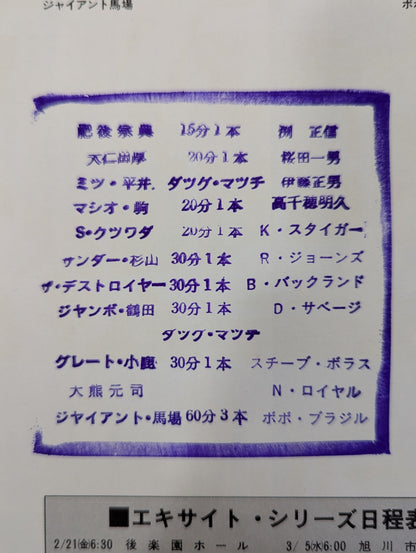 ジャイアント馬場
肥後宗典 15分1本 渕 正信
大仁田厚 20分1本 桜田一男
ミツ・平井 タッグ・マッチ 伊藤正男
マシオ・駒 20分1本 高千穂明久
S・クツワダ 20分1本 K・スタイガー
サンダー・杉山 30分1本 R・ジョーンズ
ザ・デストロイヤー 30分1本 B・バックランド
ジャンボ・鶴田 30分1本 D・サベージ
タッグ・マッチ
グレート・小鹿 30分1本 スチーブ・ボラス
大熊元司 N・ロイヤル
ジャイアント・馬場 60分3本 ボボ・ブラジル
■エキサイト・シリーズ日程表
2/21㈮6:30 後楽園ホール 3/5㈬6:00 旭川市